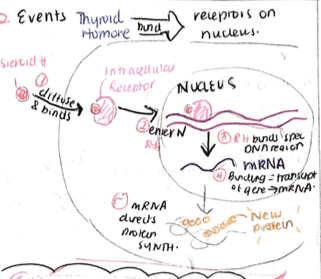 2. Events Thyroid Hormone bind receptors on nucleus.
Steroid H
① diffuse & binds
Intracellular Receptor
② enter N
NUCLEUS
③ RH binds spec DNA region
mRNA
④ Binding = transcript of gene → mRNA.
mRNA directs protein SYNTH.
New Protein